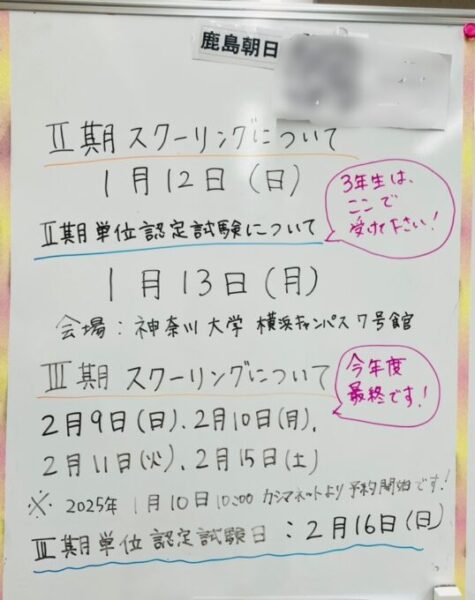 鹿島朝日
Ⅱ期スクーリングについて
1月12日（日）
3年生は、
ここで
受けて下さい！
Ⅱ期単位認定試験について
1月13日（月）
会場：神奈川大学 横浜キャンパス7号館
Ⅲ期スクーリングについて
今年度
最終です！
2月9日（日）、2月10日（月）、
2月11日（火）、2月15日（土）
※ 2025年1月10日10:00 カシマネットより予約開始です！
Ⅲ期単位認定試験日：2月16日（日）